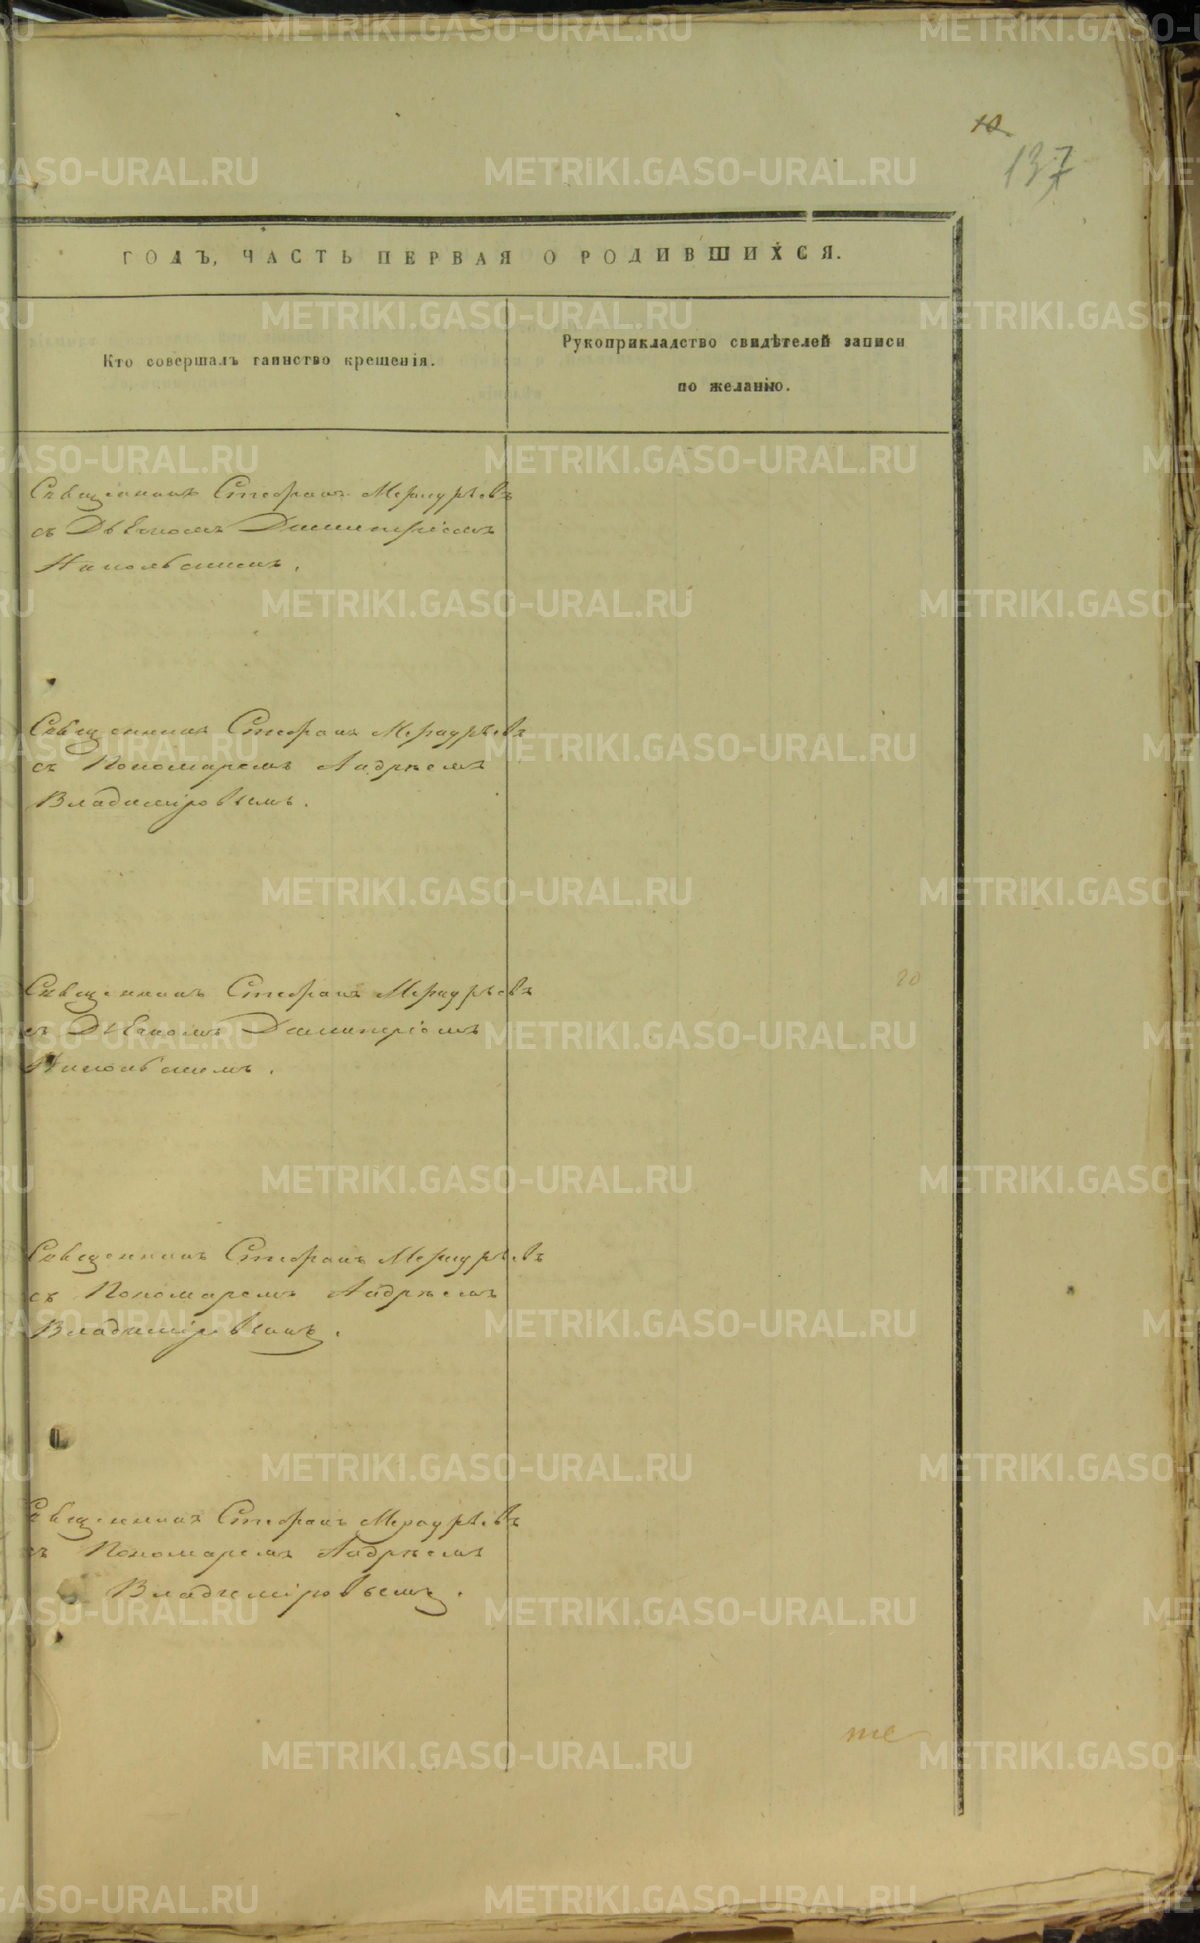 10
137
ГОДЪ, ЧАСТЬ ПЕРВАЯ О РОДИВШИХСЯ.
Кто совершалъ таинство крещенія.
Рукоприкладство свидѣтелей записи
по желанію.
Священникъ Стефанъ Меркурьевъ
съ Дьякономъ Димитріемъ
Никольскимъ.
Священникъ Стефанъ Меркурьевъ
съ Пономаремъ Андреемъ
Владиміровымъ.
Священникъ Стефанъ Меркурьевъ
съ Дьякономъ Димитріемъ
Никольскимъ.
Священникъ Стефанъ Меркурьевъ
съ Пономаремъ Андреемъ
Владиміровымъ.
Священникъ Стефанъ Меркурьевъ
съ Пономаремъ Андреемъ
Владиміровымъ.
METRIKI.GASO-URAL.RU